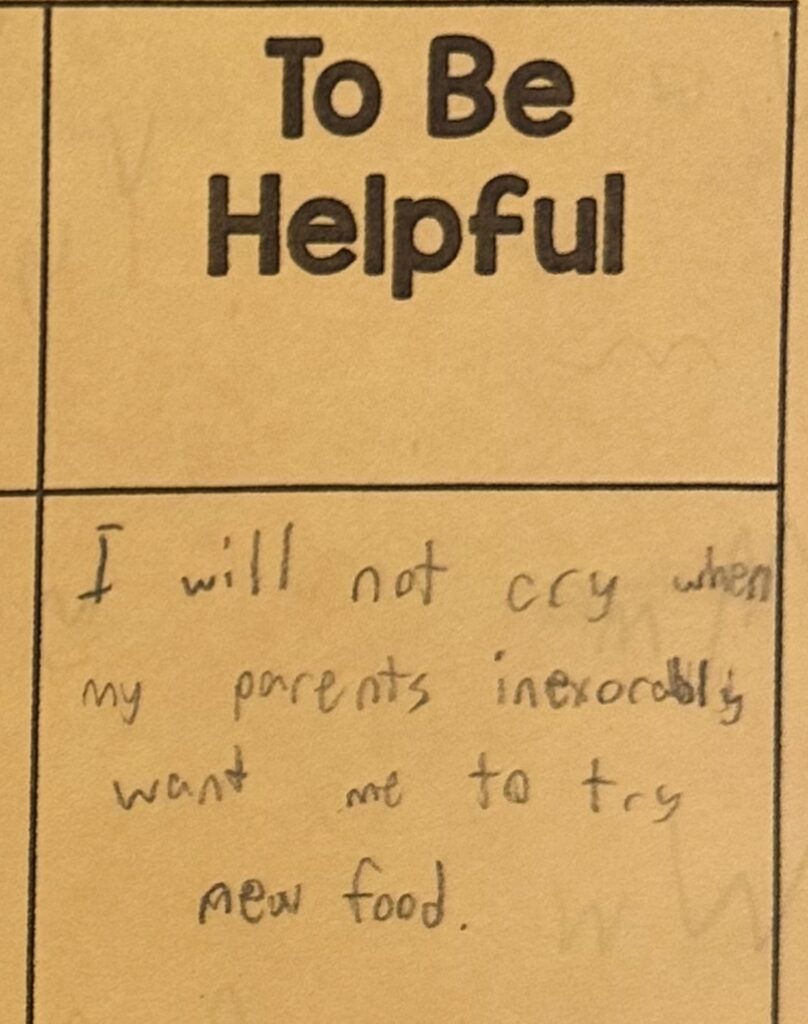 To Be
Helpful
I will not cry when
my parents inexorably
want me to try
new food.